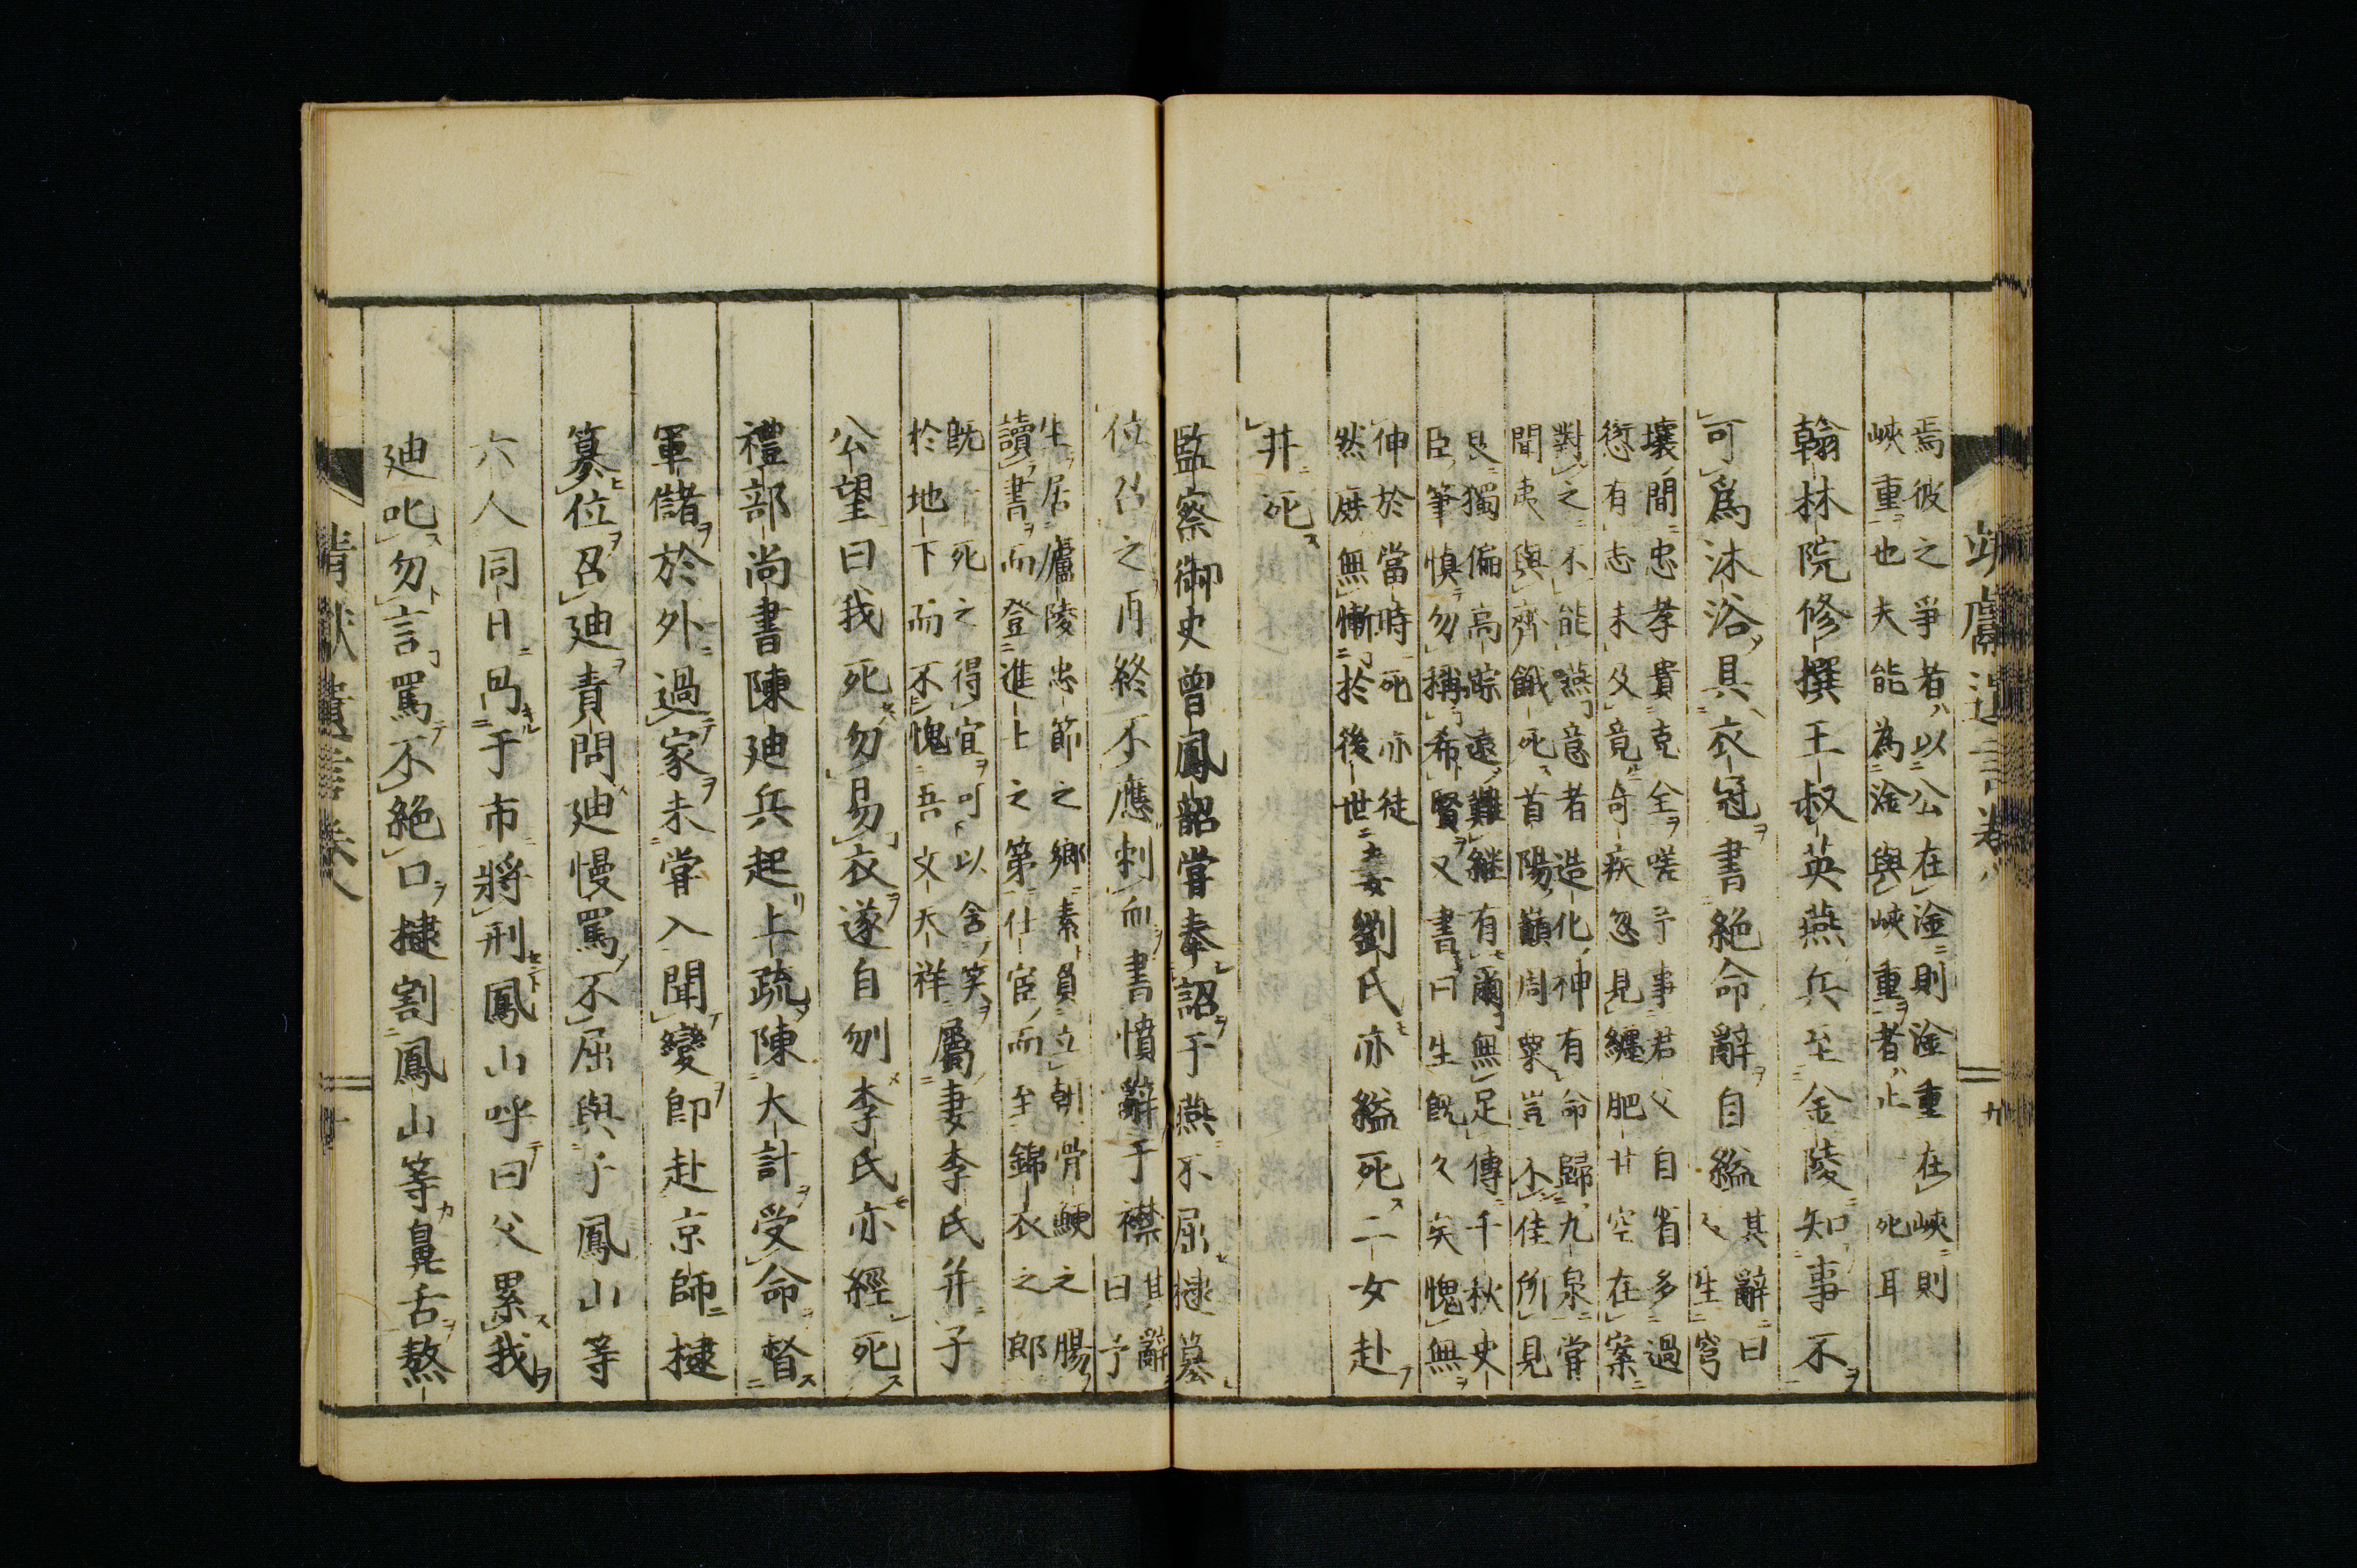 焉彼之爭者以公在淦則淦重在峽則
峽重也夫能為淦與峽重者止死耳
翰林院修撰王叔英燕兵至金陵知事不
可為沐浴具衣冠書絕命辭自縊其辭曰
人生穹
壤間忠孝貴克全嗟予事君父自省多過
愆有志未及竟奇疾忽見纏肥甘空在案
對之不能嚥意者造化神有命歸九泉嘗
聞夷與齊餓死首陽巔周粟豈不佳所見
良獨偏高踪遠難繼有爾無足傳千秋史
臣筆慎勿稱希賢又書曰生既久矣愧無
伸於當時死亦徒
然庶無慚於後世妻劉氏亦縊死二女赴
井死
監察御史曾鳳韶嘗奉詔于燕不屈逮篡
位召之再終不應刺血書憤辭于襟其辭
曰予
生居廬陵忠節之鄉素負立朝骨鯁之腸
讀書而登進士之第仕宦而至錦衣之郎
既死之得宜可以含笑
於地下而不愧吾文天祥屬妻李氏并子
公望曰我死勿易衣遂自刎李氏亦經死
禮部尚書陳廸兵起上疏陳大計受命督
軍儲於外過家未嘗入聞變即赴京師逮
篡位召廸責問廸慢罵不屈與子鳳山等
六人同日冎于市將刑鳳山呼曰父累我
廸叱勿言罵不絕口逮割鳳山等鼻舌熬
卷八
九
十